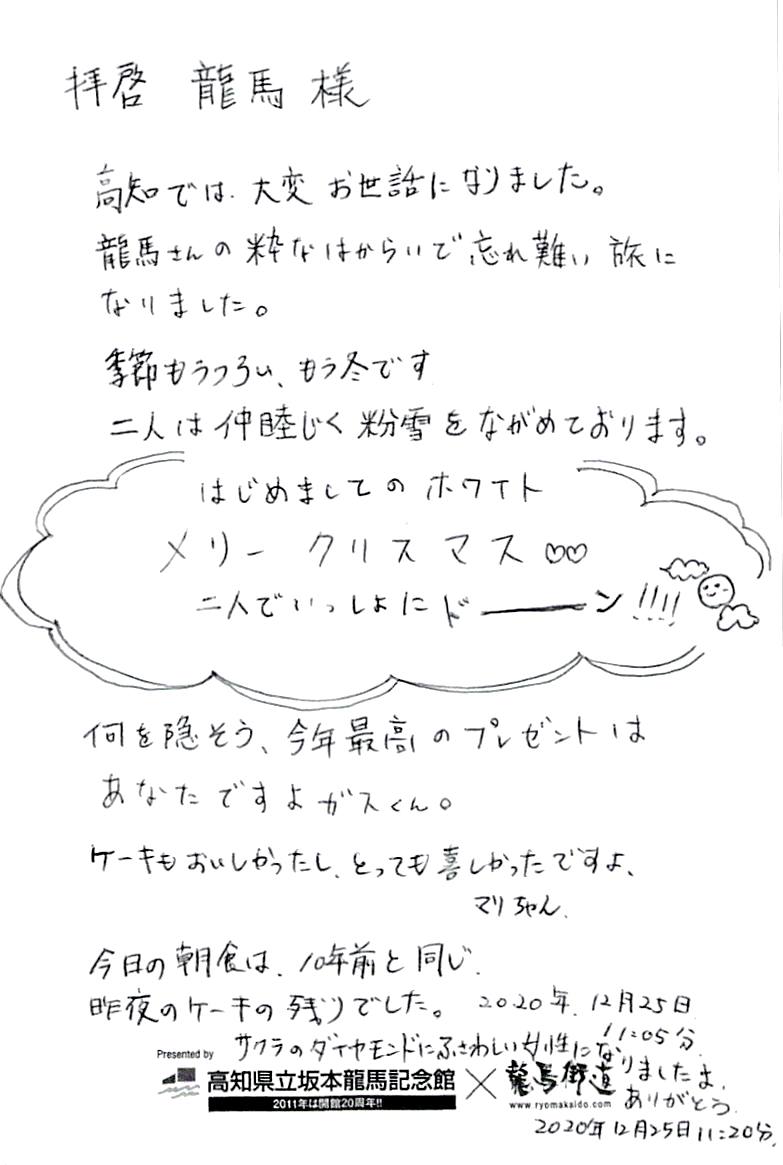 拝啓 龍馬様
高知では、大変お世話になりました。
龍馬さんの粋なはからいで忘れ難い旅に
なりました。
季節もうつろい、もう冬です
二人は仲睦じく粉雪をながめております。
はじめましてのホワイト
メリークリスマス♡♡
二人でいっしょにドーーーン!!!!
何を隠そう、今年最高のプレゼントは
あなたですよガスくん。
ケーキもおいしかったし、とっても喜しかったですよ、
マリちゃん.
今日の朝食は、10年前と同じ、
昨夜のケーキの残りでした。 2020年.12月25日
11:05分.
サクラのダイヤモンドにふさわしい女性にな
りましたよ
ありがとう.
2020年12月25日11:20分.
Presented by
高知県立坂本龍馬記念館 × 龍馬街道
2011年は開館20周年!!
www.ryomakaido.com